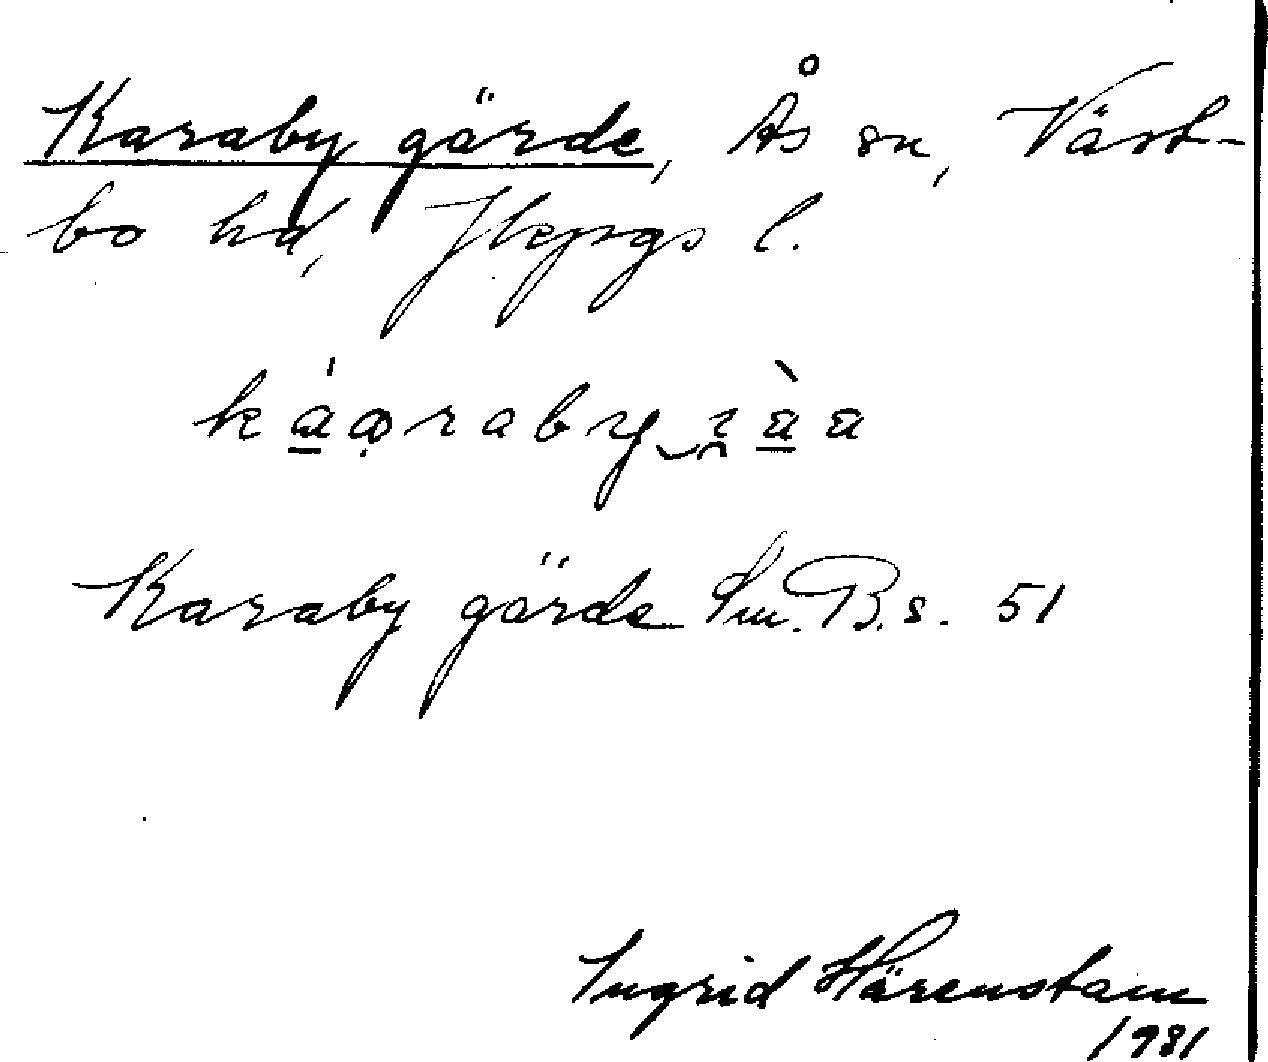 Karaby gärde, Ås sn, Väst-
bo hd, Jkpgs l.
Karaby gärde Sm. B. s. 51
Ingrid Härenstam
1931